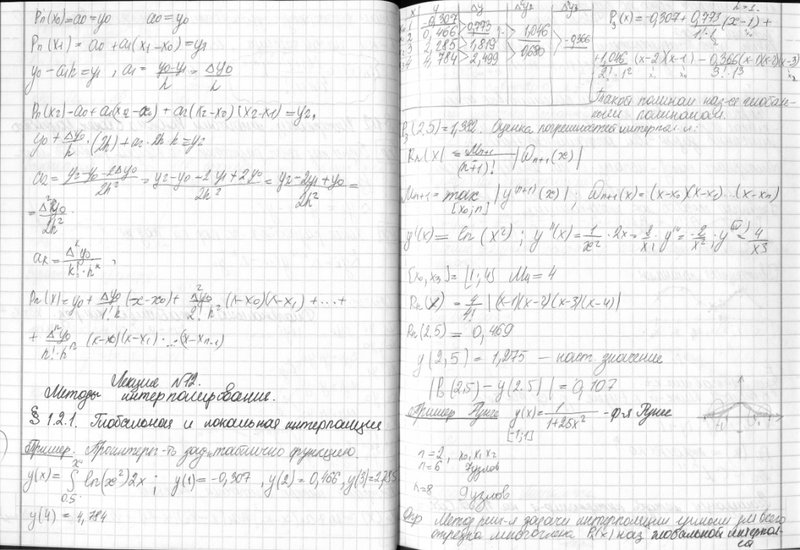 Pn(x0)=a0=y0    a0=y0
Pn(x1) = a0+a1(x1-x0)=y1
y0-a1h=y1, a1= (y0-y1)/h = Δy0/h
Pn(x2)=a0+a1(x2-x0)+a2(x2-x0)(x2-x1)=y2,
y0+ Δy0/h ·(2h)+a2·2h·h=y2
a2= (y2-y0-2Δy0)/2h² = (y2-y0-2y1+2y0)/2h² = (y2-2y1+y0)/2h² =
= Δ²y0/2h²
ak= Δ^k y0/(k!·h^k),
Pn(x)=y0+ Δy0/(1!·h) (x-x0)+ Δ²y0/(2!·h²) (x-x0)(x-x1)+...+
+ Δ^n y0/(n!·h^n) (x-x0)(x-x1)·...·(x-xn-1)
Лекция №12.
Методы интерполирование.
§ 1.2.1. Глобальная и локальная интерполяция
Пример. Проинтерпол-ть зад. таблично функцию.
y(x)= ∫ 0.5 x ln(x²)2x ; y(1)=-0,307, y(2)=0,466, y(3)=2,285
y(4)=4,784
x y Δy Δy2 Δy3
1 -0,307 0,773 1,046 -0,366
2 0,466 1,819 0,680
3 2,285 2,499
4 4,784
h=1.
P3(x)=-0,307+ 0,773/(1·1) (x-1)+
+ 1,046/(2!·1²) (x-2)(x-1) - 0,366(x-1)(x-2)(x-3)/(3!·1³)
Такой полином наз-ся глобаль-
ным полиномом.
P3(2.5)=1,382. Оценка погрешностей интерпол-и:
Rn(x) = Mn+1/(n+1)! |ωn+1(x)|
Mn+1= max [x0,n] |y(n+1)(x)|; ωn+1(x)=(x-x0)(x-x1)..(x-xn)
y'(x)= ln(x²); y''(x)= 1/x² ·2x= 2/x; y'''=-2/x²; y(IV)= 4/x3
[x0,x3]=[1;4] M4=4
R4(x) = 4/4! |(x-1)(x-2)(x-3)(x-4)|
R4(2.5)= 0,469
y(2,5)=1,275 — наст. значение
|P3(2.5)-y(2.5)|=0,107
Пример Рунге y(x)= 1/(1+25x²) -ф-я Рунге
[-1;1]
n=2, x0,x1,x2
n=6 7узлов
n=8 9узлов
Опр Метод реш-я задачи интерполяции единым для всего
отрезка многочлена Pn(x) наз глобальной интерпол-